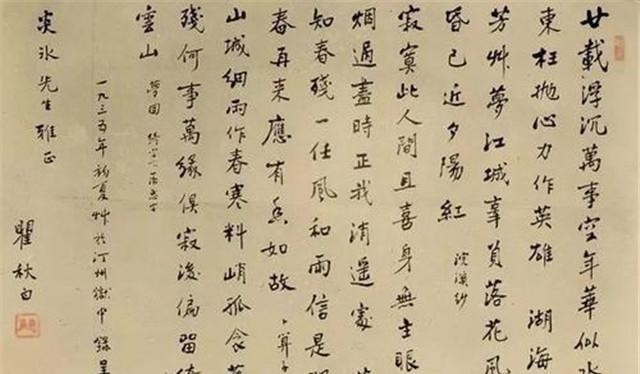 廿載浮沉萬事空年華似水
東枉抛心力作英雄 湖海
芳艸夢江城辜負落花風
昏已近夕陽紅 浣溪紗
寂寞此人間且喜身無主眼
烟過盡時正我消遥處
知春殘一任風和雨信是
春再來應有香如故 卜算子
山城細雨作春寒料峭孤衾
殘何事萬緣俱寂後偏留綺
雲山 夢回
一九三五年初夏艸於汀州獄中錄呈
炎冰先生雅正
瞿秋白